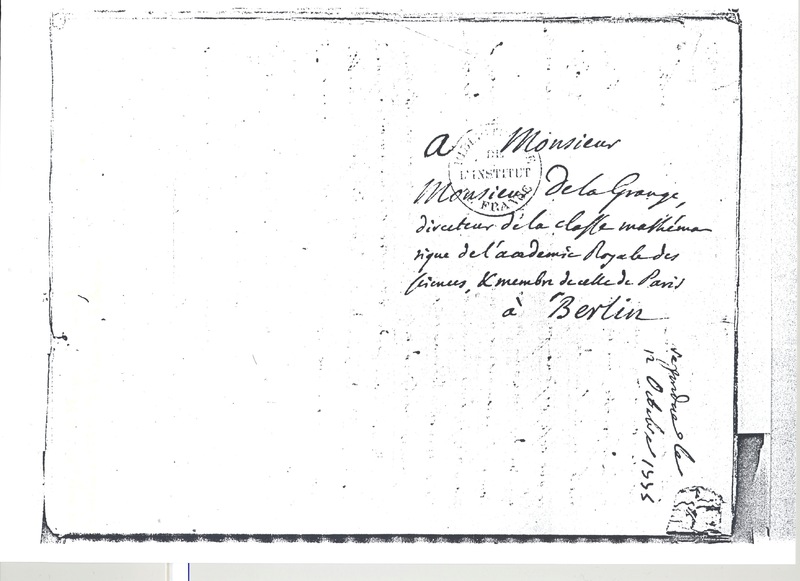 a Monsieur
BIBLIOTHÈQUE
DE
L'INSTITUT
FRANCE
Monsieur De la Grange,
directeur de la classe mathéma
tique de l'academie Royale des
sciences, & membre de celle de Paris
à Berlin
repondue le
12 Octobre 1775